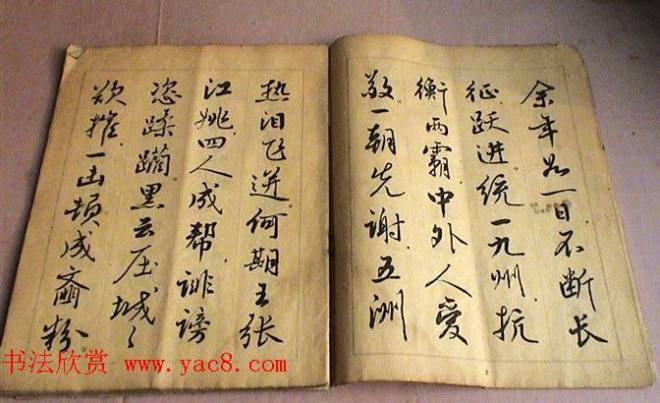 余年如一日不断长
征跃进统一九州抗
衡两霸中外人爱
敬一朝先谢五洲
热泪飞迸何期王张
江姚四人成帮诽谤
恣蹂躏黑云压城々
欲摧一击顿成齑粉
书法欣赏 www.yac8.com